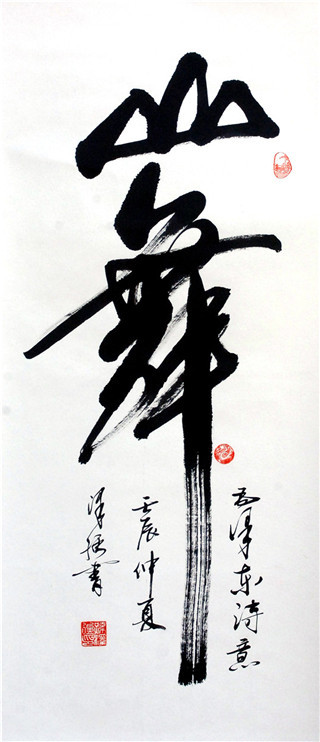 山舞
毛泽东诗意
壬辰仲夏
泽 书